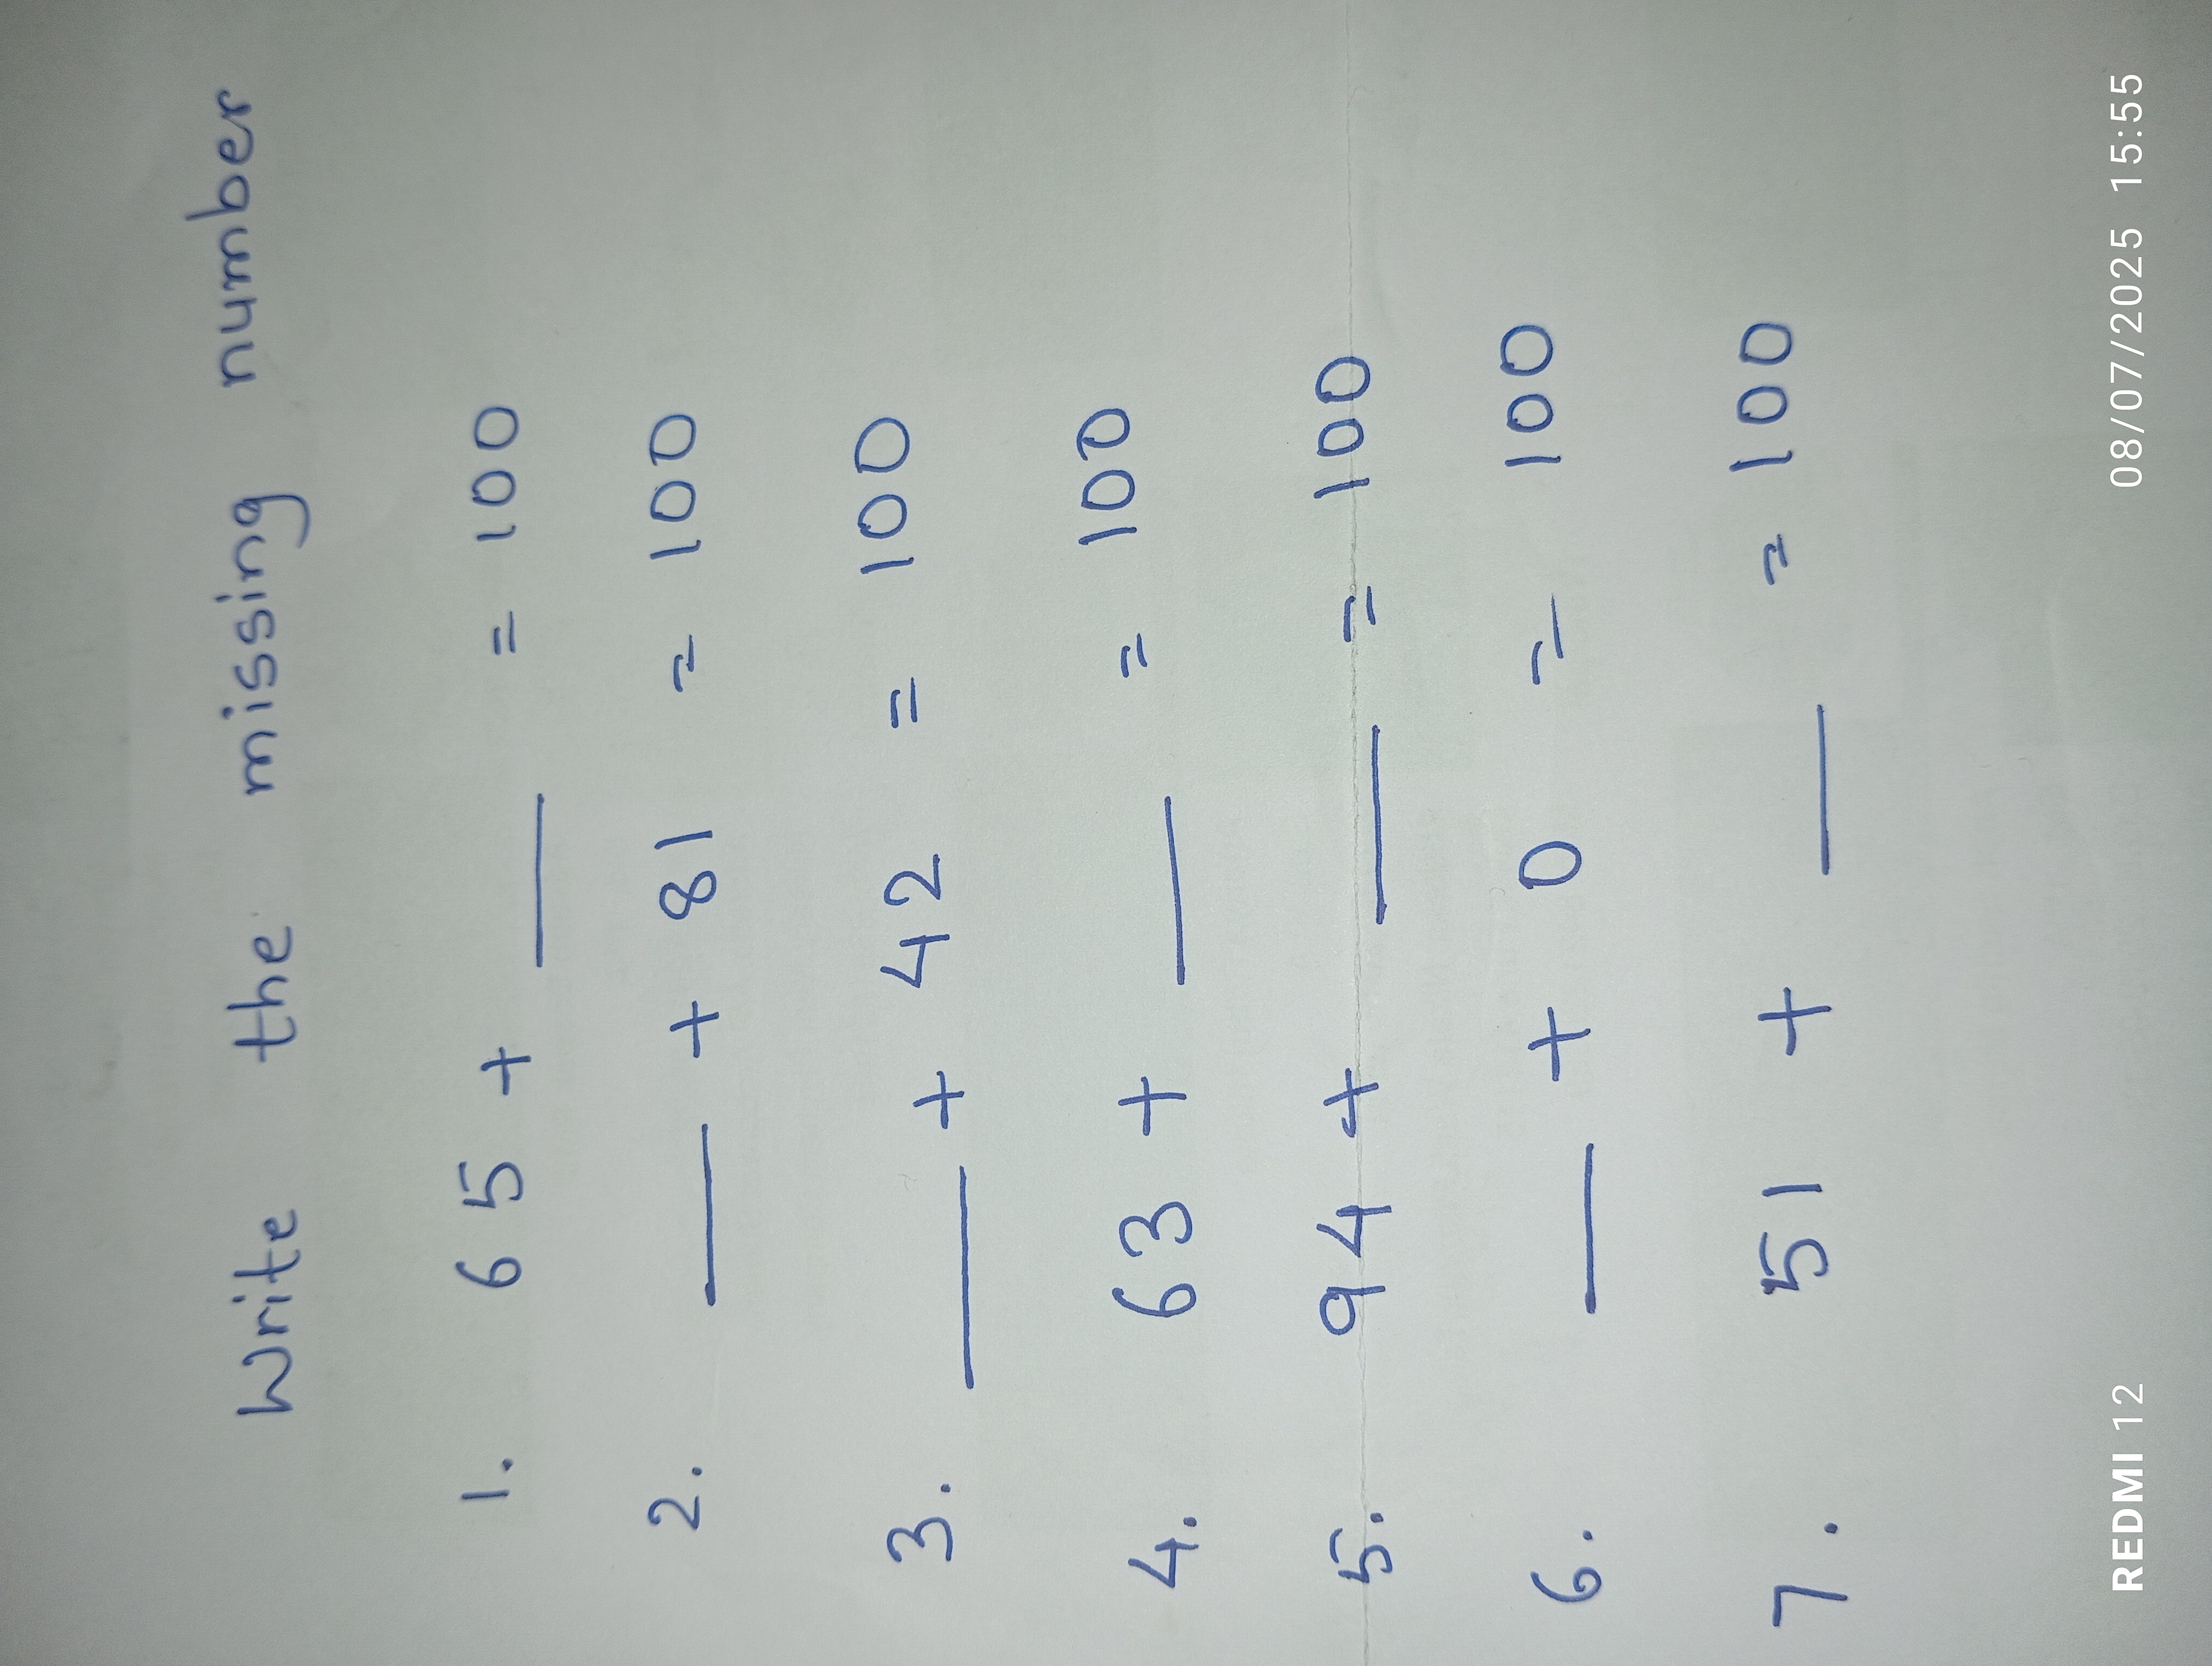 Write the missing number
1. 65 + ___ = 100
2. ___ + 81 = 100
3. ___ + 42 = 100
4. 63 + ___ = 100
5. 94 + ___ = 100
6. ___ + 0 = 100
7. 51 + ___ = 100
REDMI 12 08/07/2025 15:55